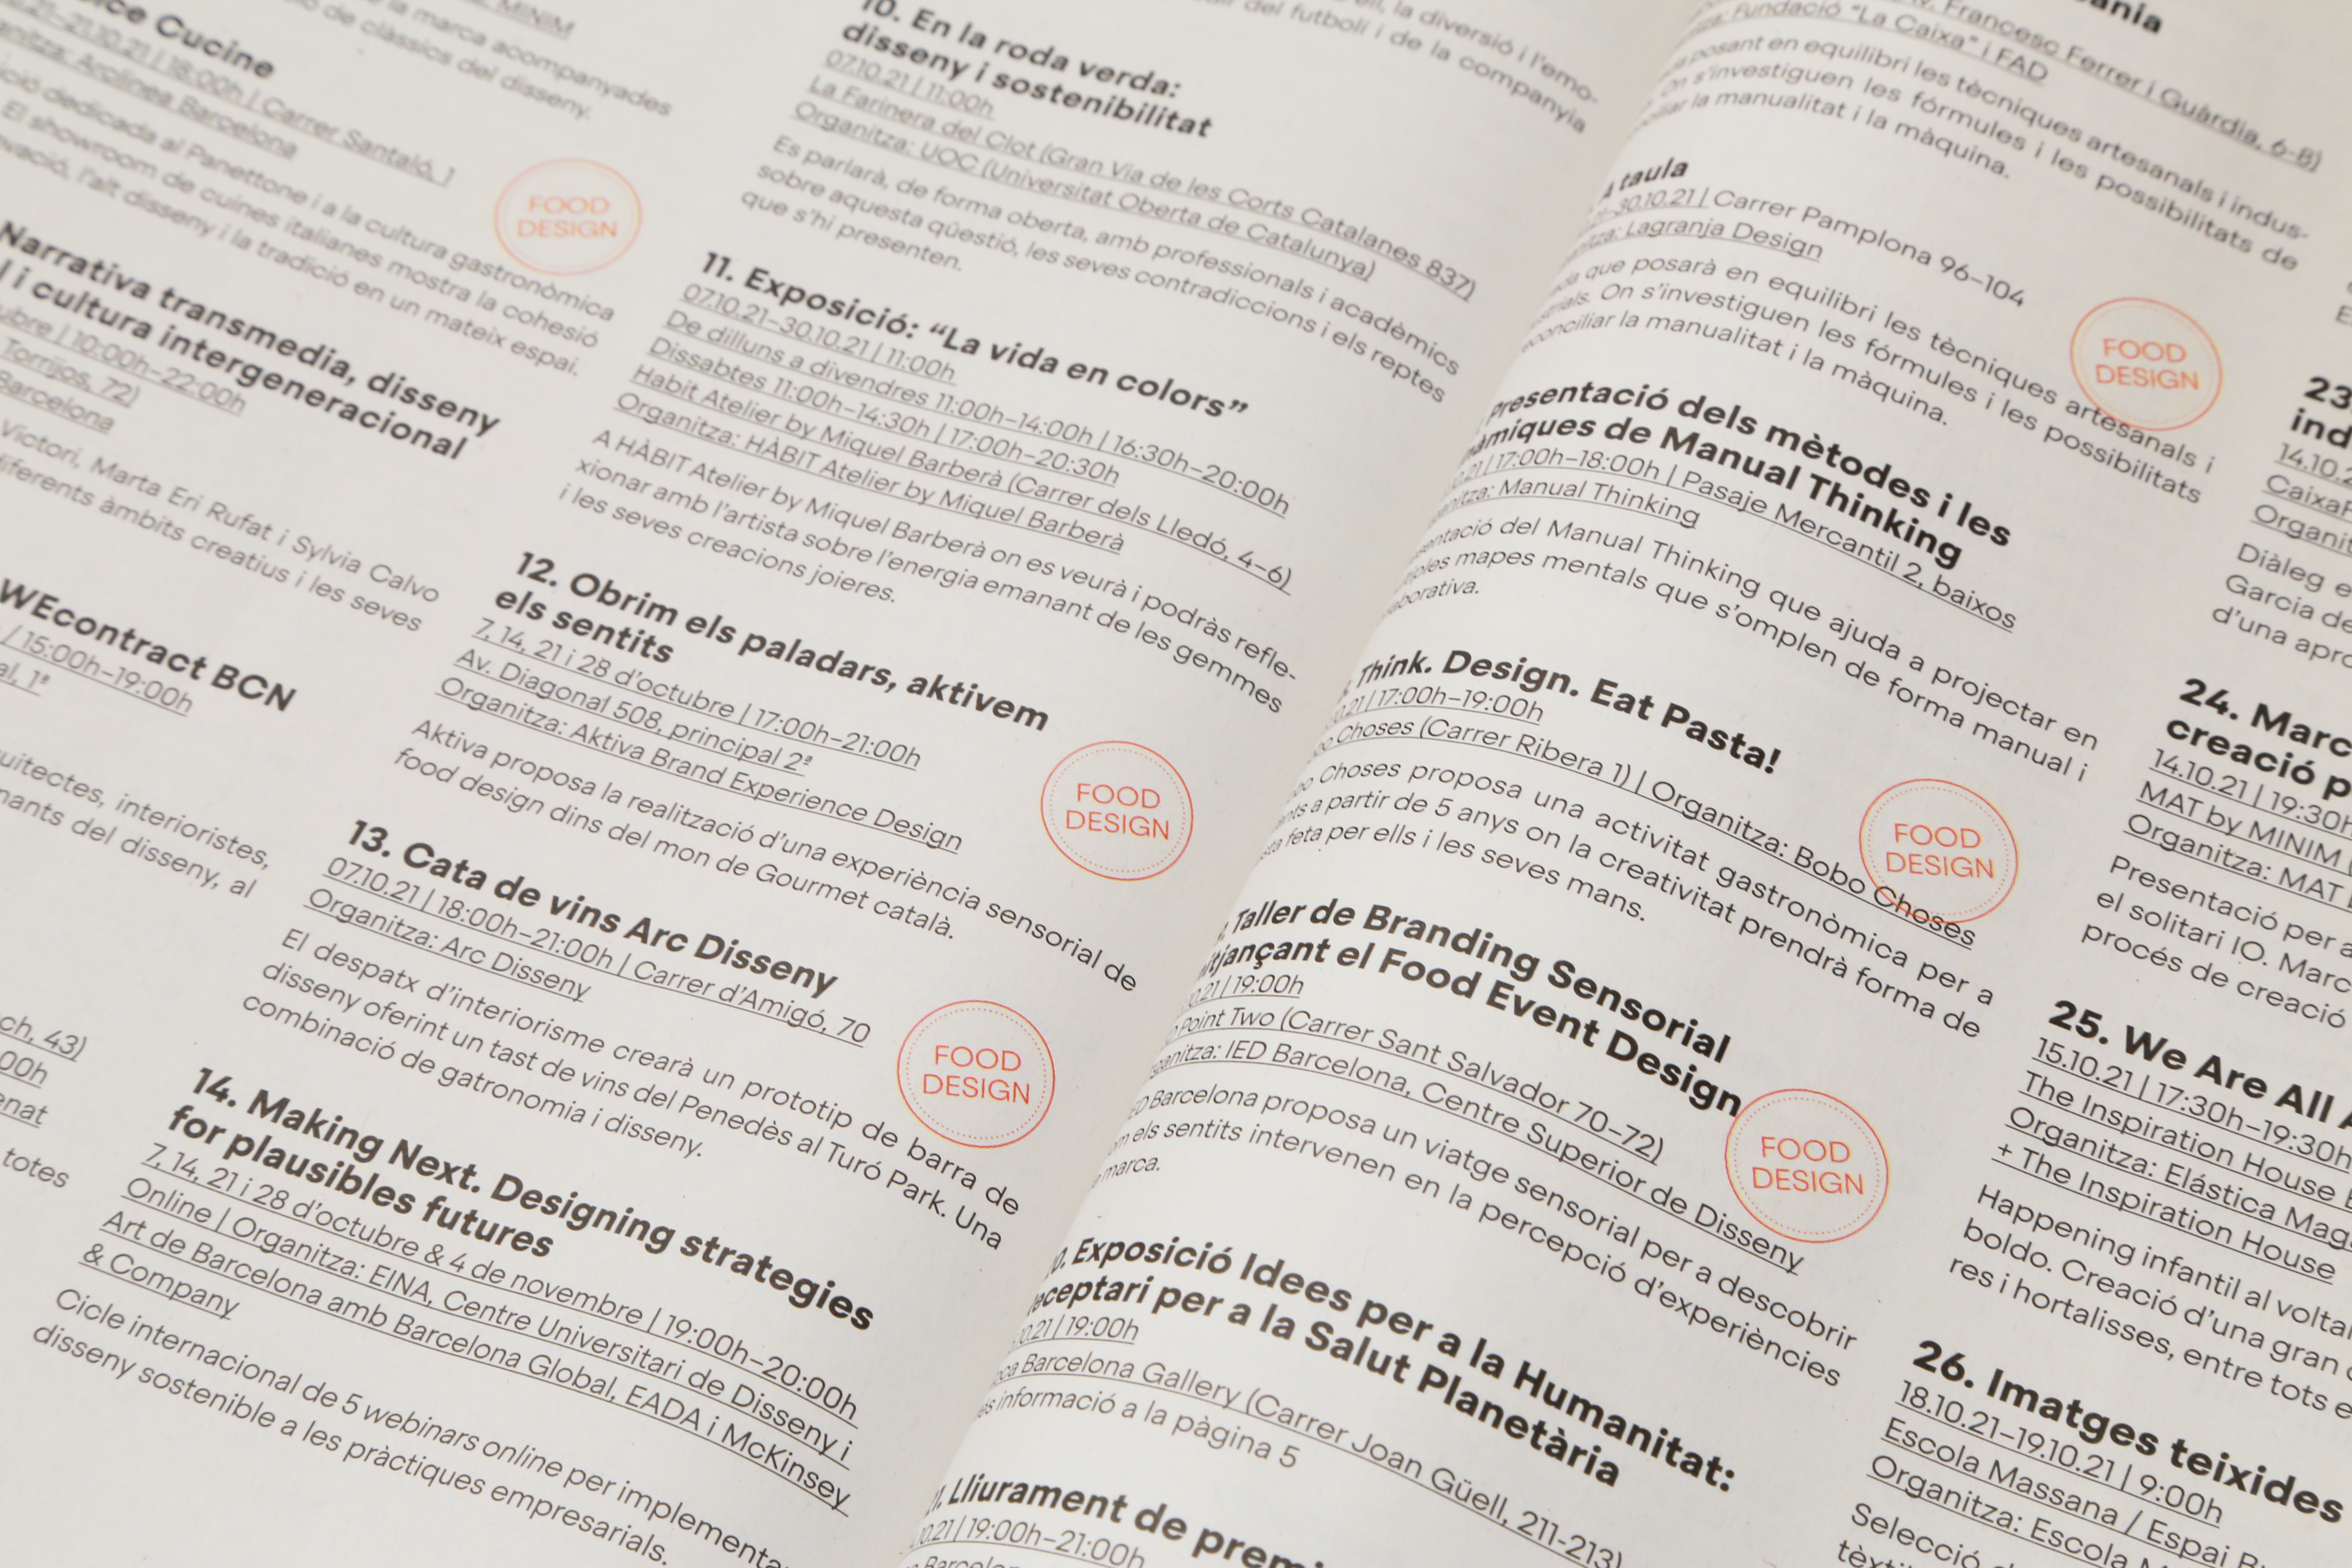 MINIM
la marca acompanyades
de clàssics del disseny.
Cucine
21.10.21 | 18:00h | Carrer Santaló, 1
Arclinea Barcelona
dedicada al Panettone i a la cultura gastronòmica
El showroom de cuines italianes mostra la cohesió
l'alt disseny i la tradició en un mateix espai.
FOOD
DESIGN
Narrativa transmedia, disseny
i cultura intergeneracional
| 10:00h–22:00h
Torrijos, 72)
Barcelona
Victori, Marta Eri Rufat i Sylvia Calvo
diferents àmbits creatius i les seves
WEcontract BCN
/ 15:00h–19:00h
1ª
interioristes,
del disseny, al
43)
totes
10. En la roda verda:
disseny i sostenibilitat
07.10.21 | 11:00h
La Farinera del Clot (Gran Via de les Corts Catalanes 837)
Organitza: UOC (Universitat Oberta de Catalunya)
Es parlarà, de forma oberta, amb professionals i acadèmics
sobre aquesta qüestió, les seves contradiccions i els reptes
que s'hi presenten.
11. Exposició: “La vida en colors”
07.10.21–30.10.21 | 11:00h
De dilluns a divendres 11:00h–14:00h | 16:30h–20:00h
Dissabtes 11:00h–14:30h | 17:00h–20:30h
Habit Atelier by Miquel Barberà (Carrer dels Lledó, 4–6)
Organitza: HÀBIT Atelier by Miquel Barberà
A HÀBIT Atelier by Miquel Barberà on es veurà i podràs refle-
xionar amb l'artista sobre l'energia emanant de les gemmes
i les seves creacions joieres.
12. Obrim els paladars, aktivem
els sentits
7, 14, 21 i 28 d'octubre | 17:00h–21:00h
Av. Diagonal 508, principal 2ª
Organitza: Aktiva Brand Experience Design
Aktiva proposa la realització d'una experiència sensorial de
food design dins del mon de Gourmet català.
FOOD
DESIGN
13. Cata de vins Arc Disseny
07.10.21 | 18:00h–21:00h | Carrer d'Amigó, 70
Organitza: Arc Disseny
El despatx d'interiorisme crearà un prototip de barra de
disseny oferint un tast de vins del Penedès al Turó Park. Una
combinació de gatronomia i disseny.
FOOD
DESIGN
14. Making Next. Designing strategies
for plausibles futures
7, 14, 21 i 28 d'octubre & 4 de novembre | 19:00h–20:00h
Online | Organitza: EINA, Centre Universitari de Disseny i
Art de Barcelona amb Barcelona Global, EADA i McKinsey
& Company
Cicle internacional de 5 webinars online per
disseny sostenible a les pràctiques empresarials.
la diversió i l'emo-
del futbolí i de la companyia
Francesc Ferrer i Guàrdia, 6-8)
Fundació “La Caixa” i FAD
posant en equilibri les tècniques artesanals i indus-
On s'investiguen les fórmules i les possibilitats de
la manualitat i la màquina.
taula
30.10.21 | Carrer Pamplona 96–104
Lagranja Design
que posarà en equilibri les tècniques artesanals i
On s'investiguen les fórmules i les possibilitats
la manualitat i la màquina.
FOOD
DESIGN
Presentació dels mètodes i les
de Manual Thinking
| 17:00h–18:00h | Pasaje Mercantil 2, baixos
Manual Thinking
del Manual Thinking que ajuda a projectar en
mapes mentals que s'omplen de forma manual i
Think. Design. Eat Pasta!
| 17:00h–19:00h
Choses (Carrer Ribera 1) | Organitza: Bobo Choses
Choses proposa una activitat gastronòmica per a
a partir de 5 anys on la creativitat prendrà forma de
feta per ells i les seves mans.
FOOD
DESIGN
Taller de Branding Sensorial
el Food Event Design
| 19:00h
Point Two (Carrer Sant Salvador 70–72)
IED Barcelona, Centre Superior de Disseny
Barcelona proposa un viatge sensorial per a descobrir
els sentits intervenen en la percepció d'experiències
marca.
FOOD
DESIGN
Exposició Idees per a la Humanitat:
per a la Salut Planetària
| 19:00h
Barcelona Gallery (Carrer Joan Güell, 211-213)
informació a la pàgina 5
Lliurament de
| 19:00h–21:00h
23
14.10.2
Organit
Diàleg e
Garcia de
d'una
24. Marc
creació
14.10.21 | 19:30h
MAT by MINIM
Organitza: MAT
Presentació per a
el solitari IO. Marc
procés de creació
25. We Are All
15.10.21 | 17:30h–19:30h
The Inspiration House
Organitza: Elástica
+ The Inspiration House
Happening infantil al
boldo. Creació d'una gran
res i hortalisses, entre tots
26. Imatges teixides
18.10.21–19.10.21 | 9:00h
Escola Massana / Espai
Organitza: Escola
Selecció